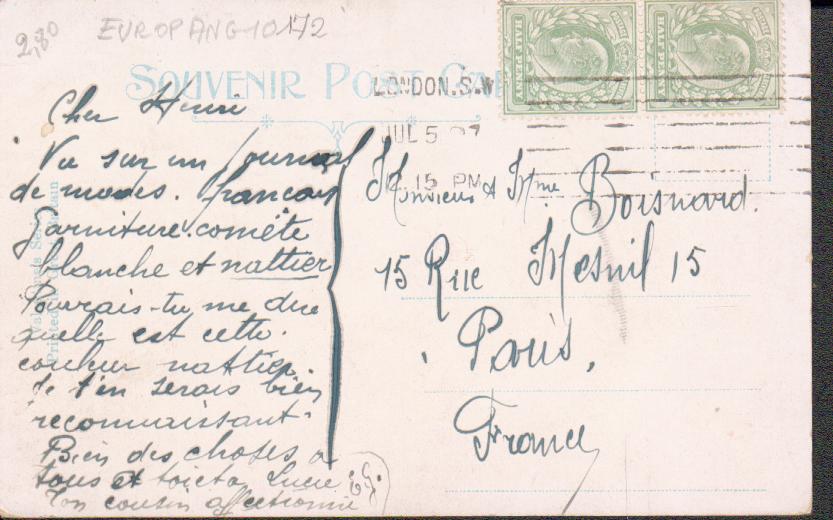 2,80 EUROPANG10172
SOUVENIR POST CA
LONDON.S.W
JUL 5 07
12.15 PM
HALF PENNY
HALF PENNY
Cher Henri
Vu sur un journal
de modes. français
garniture comète
blanche et nattier
Pourrais-tu me dire
quelle est cette
couleur nattier.
Je t'en serais bien
reconnaissant.
Bien des choses à
tous et toi et ta Lucie
Ton cousin affectionné
Monsieur & Mme Boisnard.
15 Rue Mesnil 15
Paris.
France
Printed in Great Britain